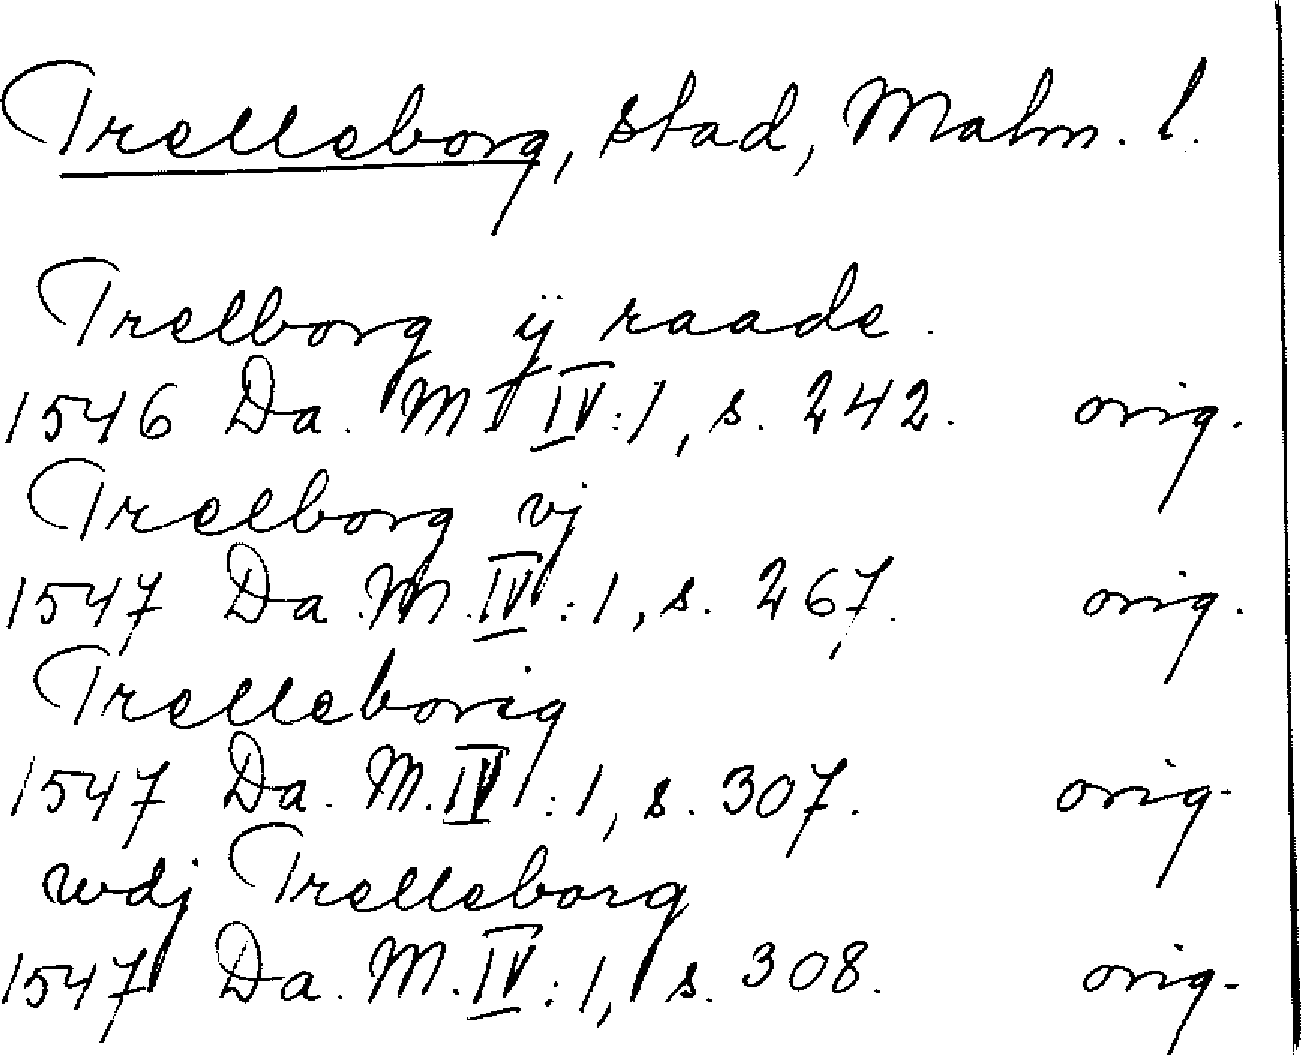 Trelleborg, stad, Malm. l.
Trelborg ij raade.
1546 Da. M. IV:1, s. 242. orig.
Trelborg vj
1547 Da. M. IV:1, s. 267. orig.
Trelleborig
1547 Da. M. IV:1, s. 307. orig.
wdj Trelleborg
1547 Da. M. IV:1, s. 308. orig.